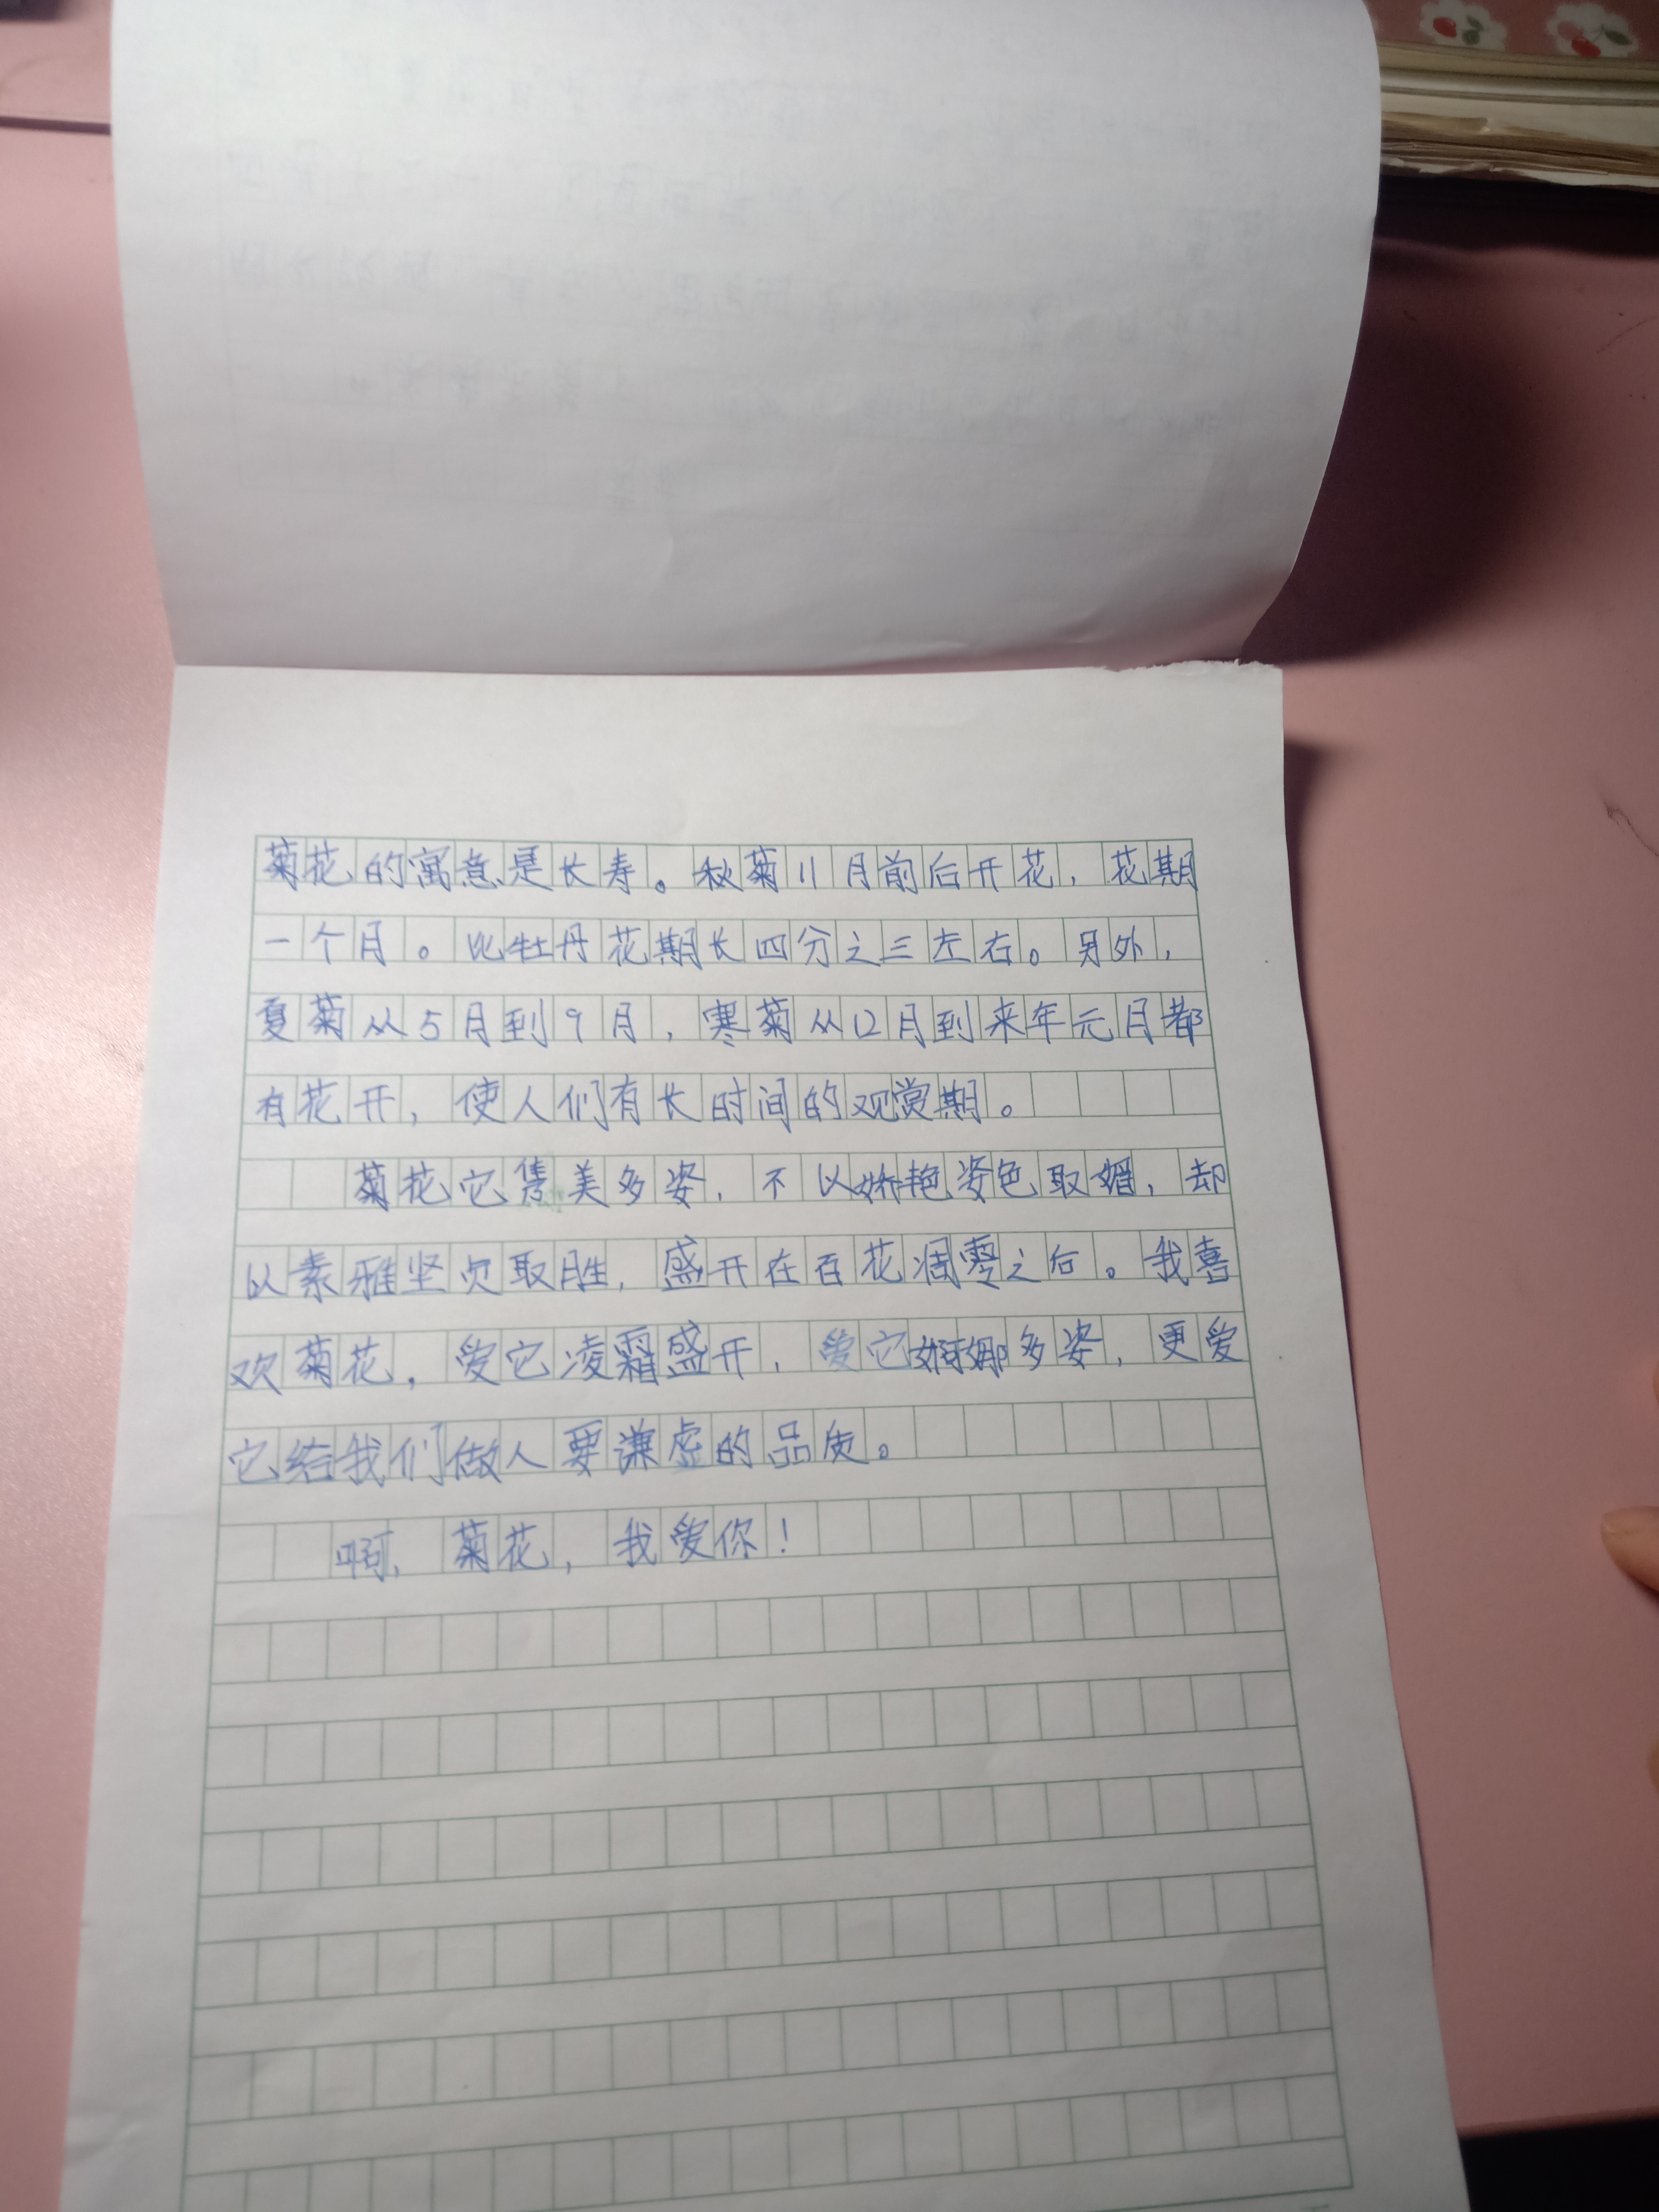 菊花的寓意是长寿。秋菊11月前后开花，花期
一个月。比牡丹花期长四分之三左右。另外，
夏菊从5月到9月，寒菊从12月到来年元月都
有花开，使人们有长时间的观赏期。
菊花它隽美多姿，不以娇艳姿色取媚，却
以素雅坚贞取胜，盛开在百花凋零之后。我喜
欢菊花，爱它凌霜盛开，爱它婀娜多姿，更爱
它给我们做人要谦虚的品质。
啊，菊花，我爱你！